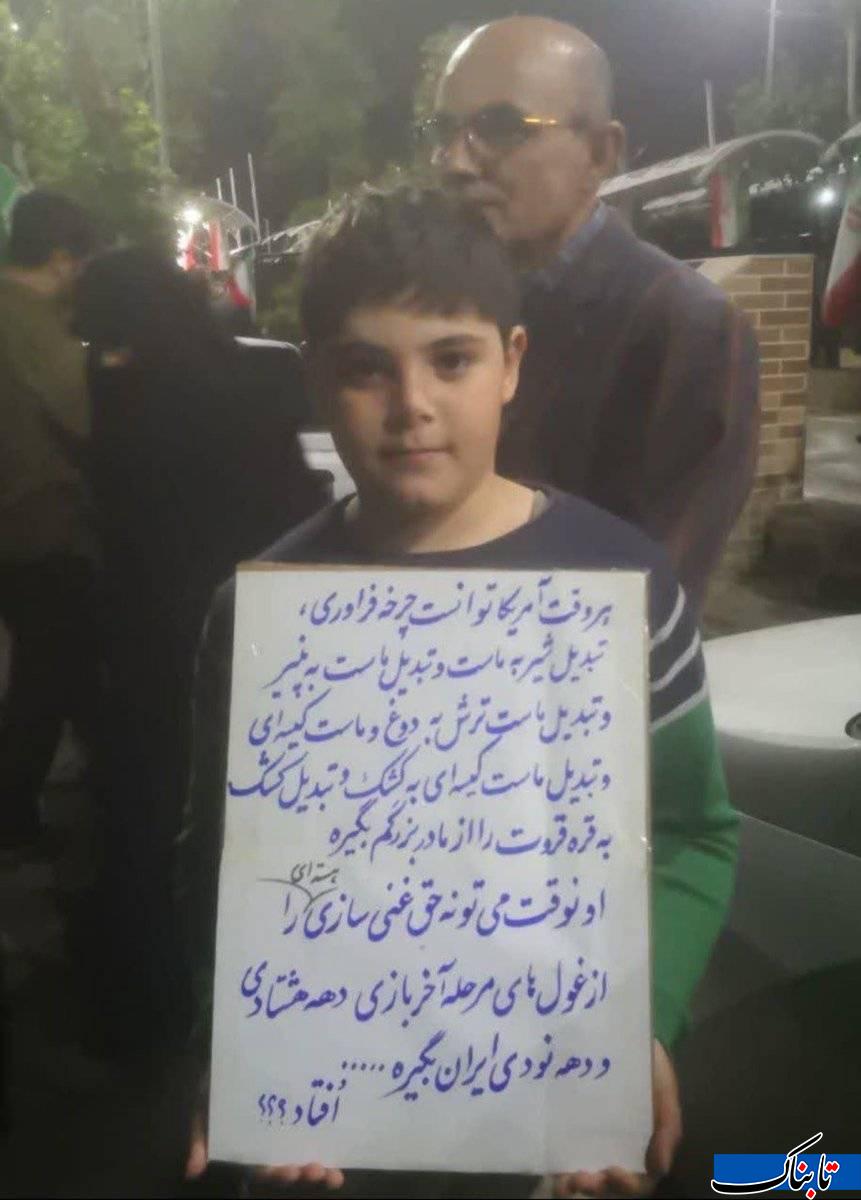 هر وقت آمریکا توانست چرخه فراوری،
تبدیل شیر به ماست و تبدیل ماست به پنیر
و تبدیل ماست ترش به دوغ و ماست کیسه ای
و تبدیل ماست کیسه ای به کشک و تبدیل کشک
به قره قروت را از مادربزرگم بگیره
هسته ای
اونوقت می تونه حق غنی سازی را
از غول های مرحله آخر بازی دهه هشتادی
و دهه نودی ایران بگیره .....
اُفتاد؟؟؟
تابناک